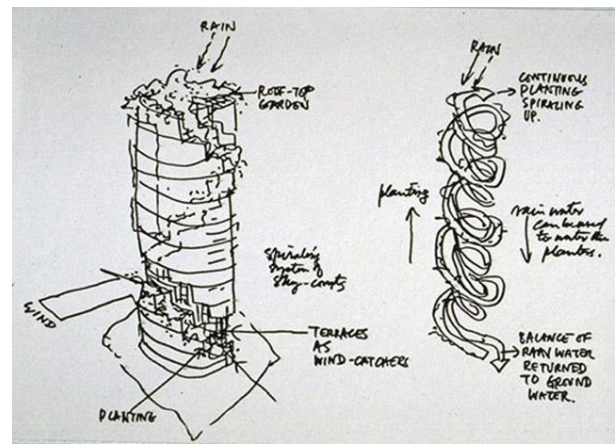 RAIN
ROOF-TOP
GARDEN
Spiraling
system of
sky-courts
WIND
TERRACES
AS
WIND-CATCHERS
PLANTING
RAIN
CONTINUOUS
PLANTING
SPIRALING
UP.
planting
rain water
can be used
to water the
planters.
BALANCE OF
RAIN WATER
RETURNED
TO GROUND
WATER.